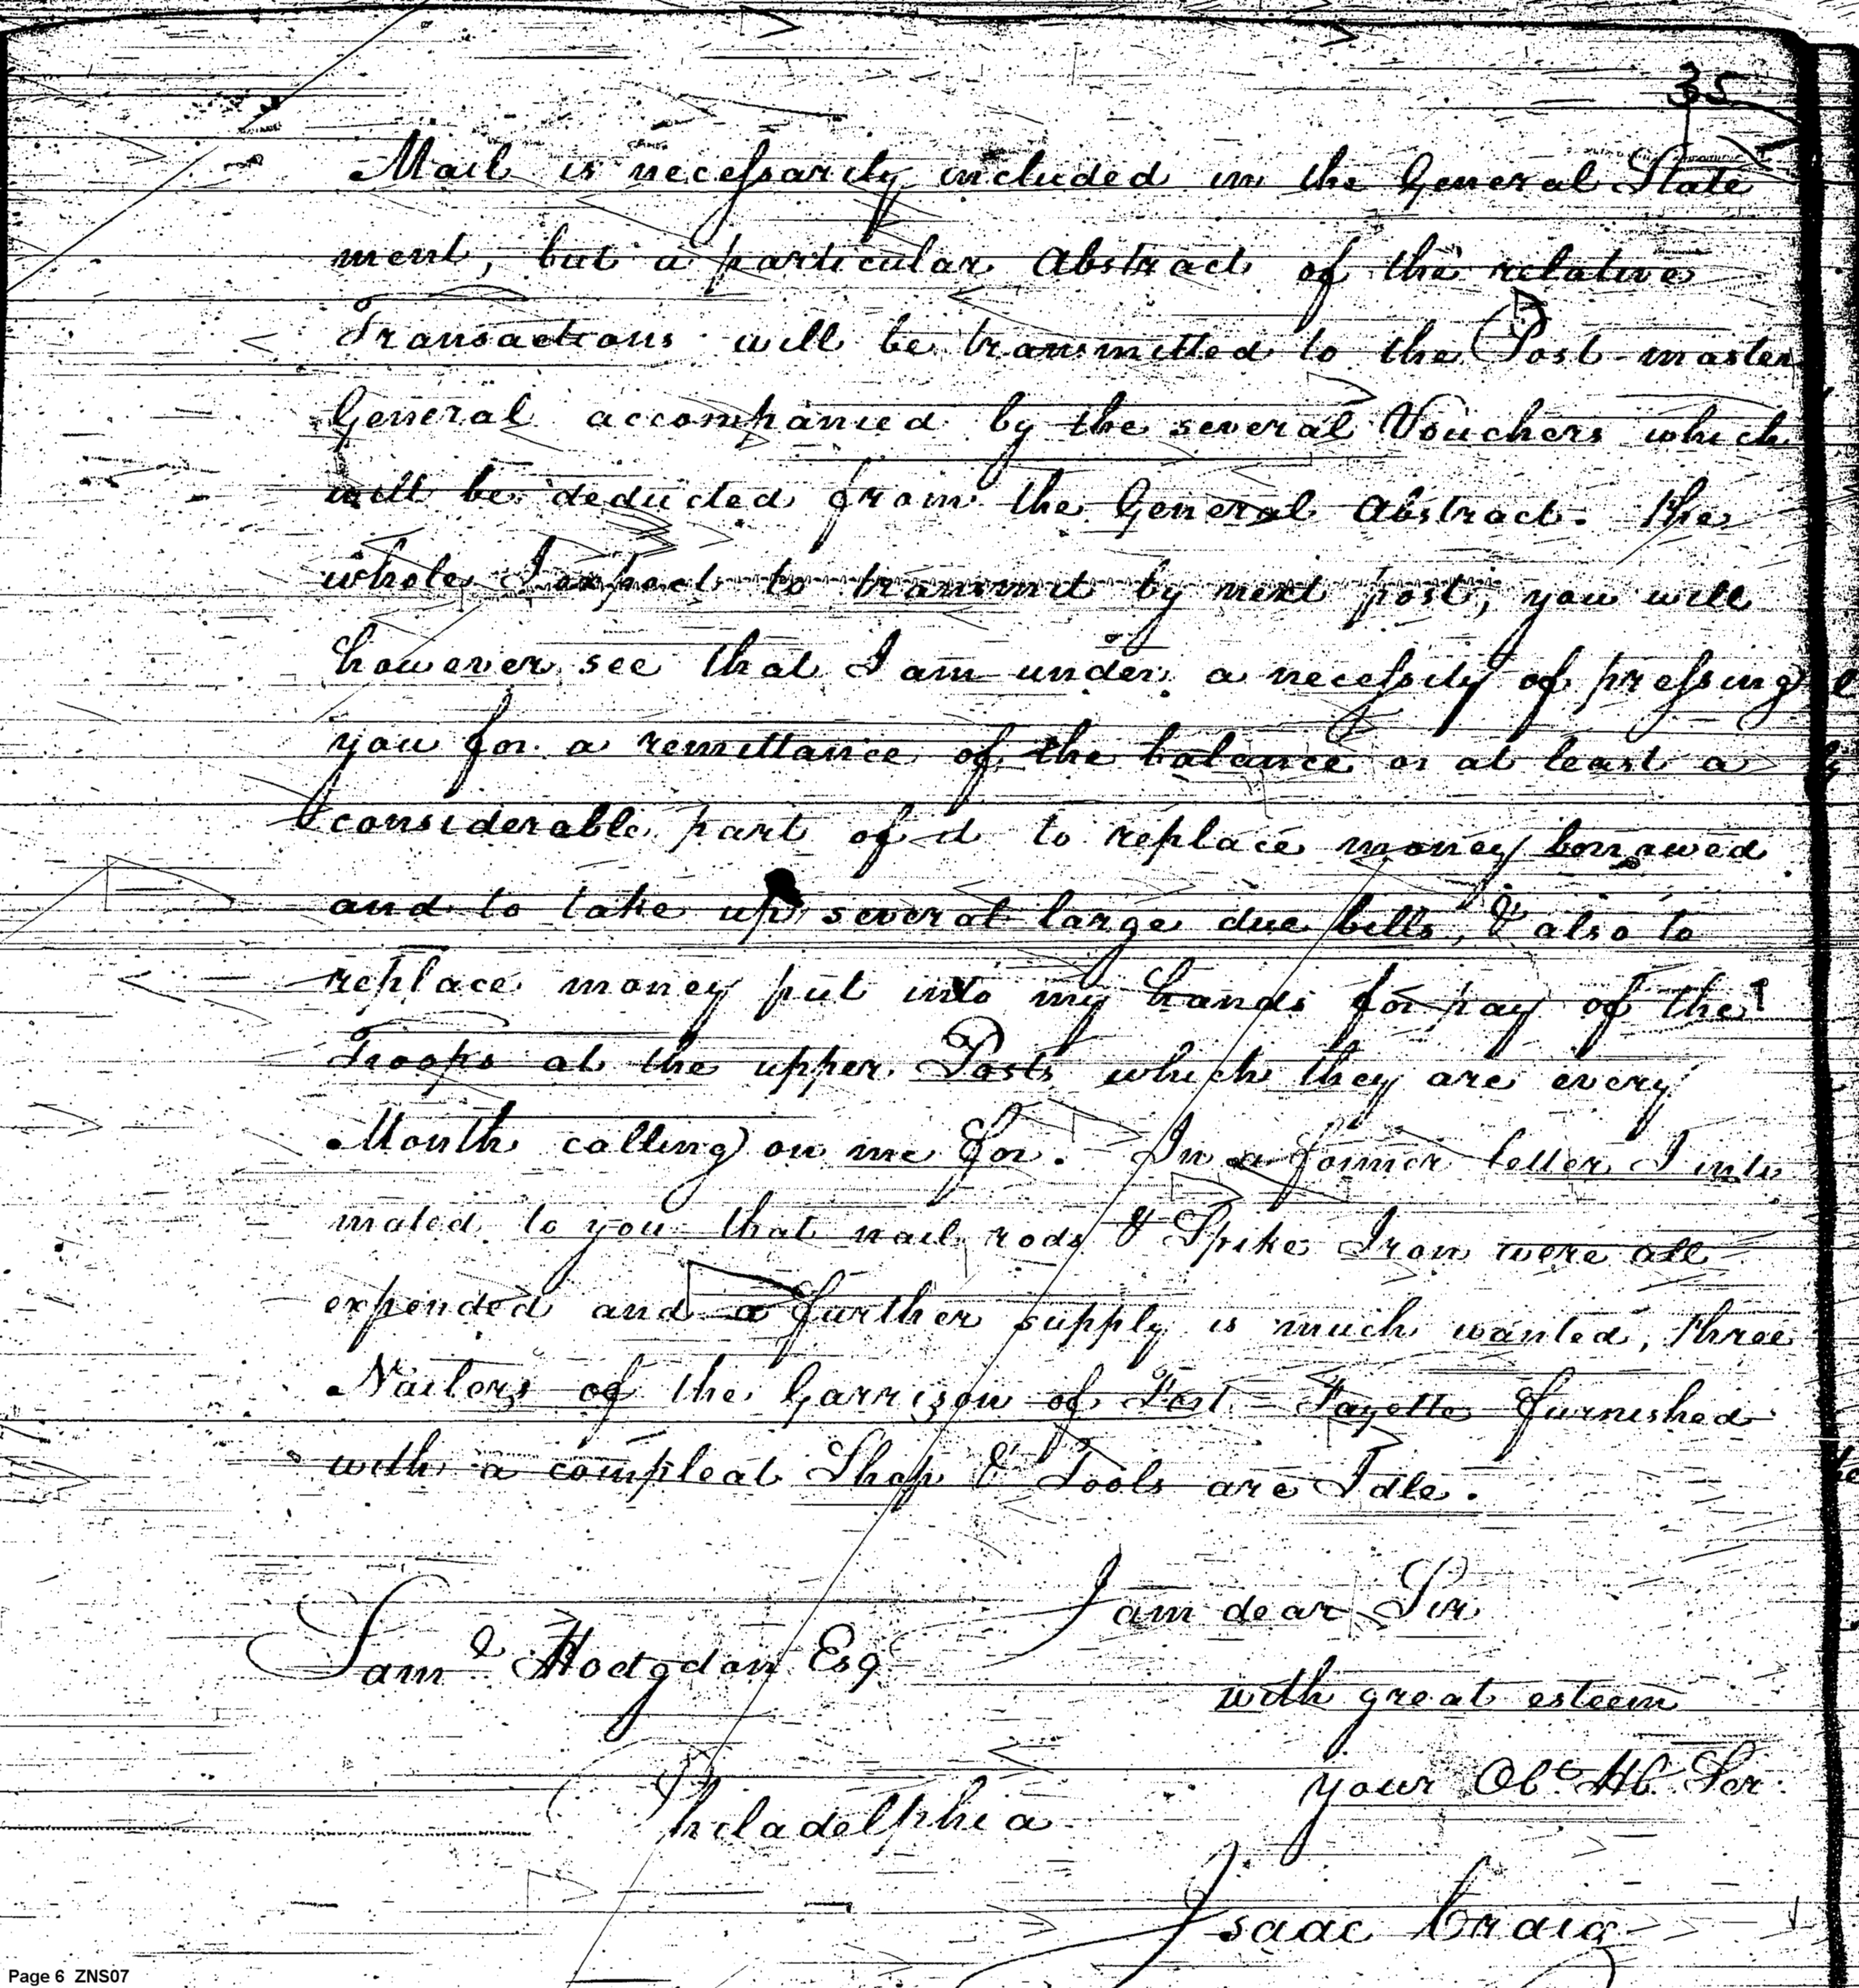 35
Mail is necessarily included in the General State
ment, but a particular Abstract of the relative
Transactions will be transmitted to the Post-master
General accompanied by the several Vouchers which
will be deducted from the General Abstract. The
whole I expect to transmit by next post, you will
however see that I am under a necessity of pressing
you for a remittance of the balance or at least a
considerable part of it to replace money borrowed
and to take up several large due bills, & also to
replace money put into my hands for pay of the
Troops at the upper Posts which they are every
Month calling on me for. In a former letter I inti
mated to you that nail rods & Spike Iron were all
expended and a further supply is much wanted, three
Nailors of the Garrison of Fort Fayette furnished
with a compleat Shop & Tools are Idle.
I am dear Sir
Saml Hodgdon Esq
with great esteem
your Obt Hb Ser.
Philadelphia
Isaac Craig
Page 6 ZNS07